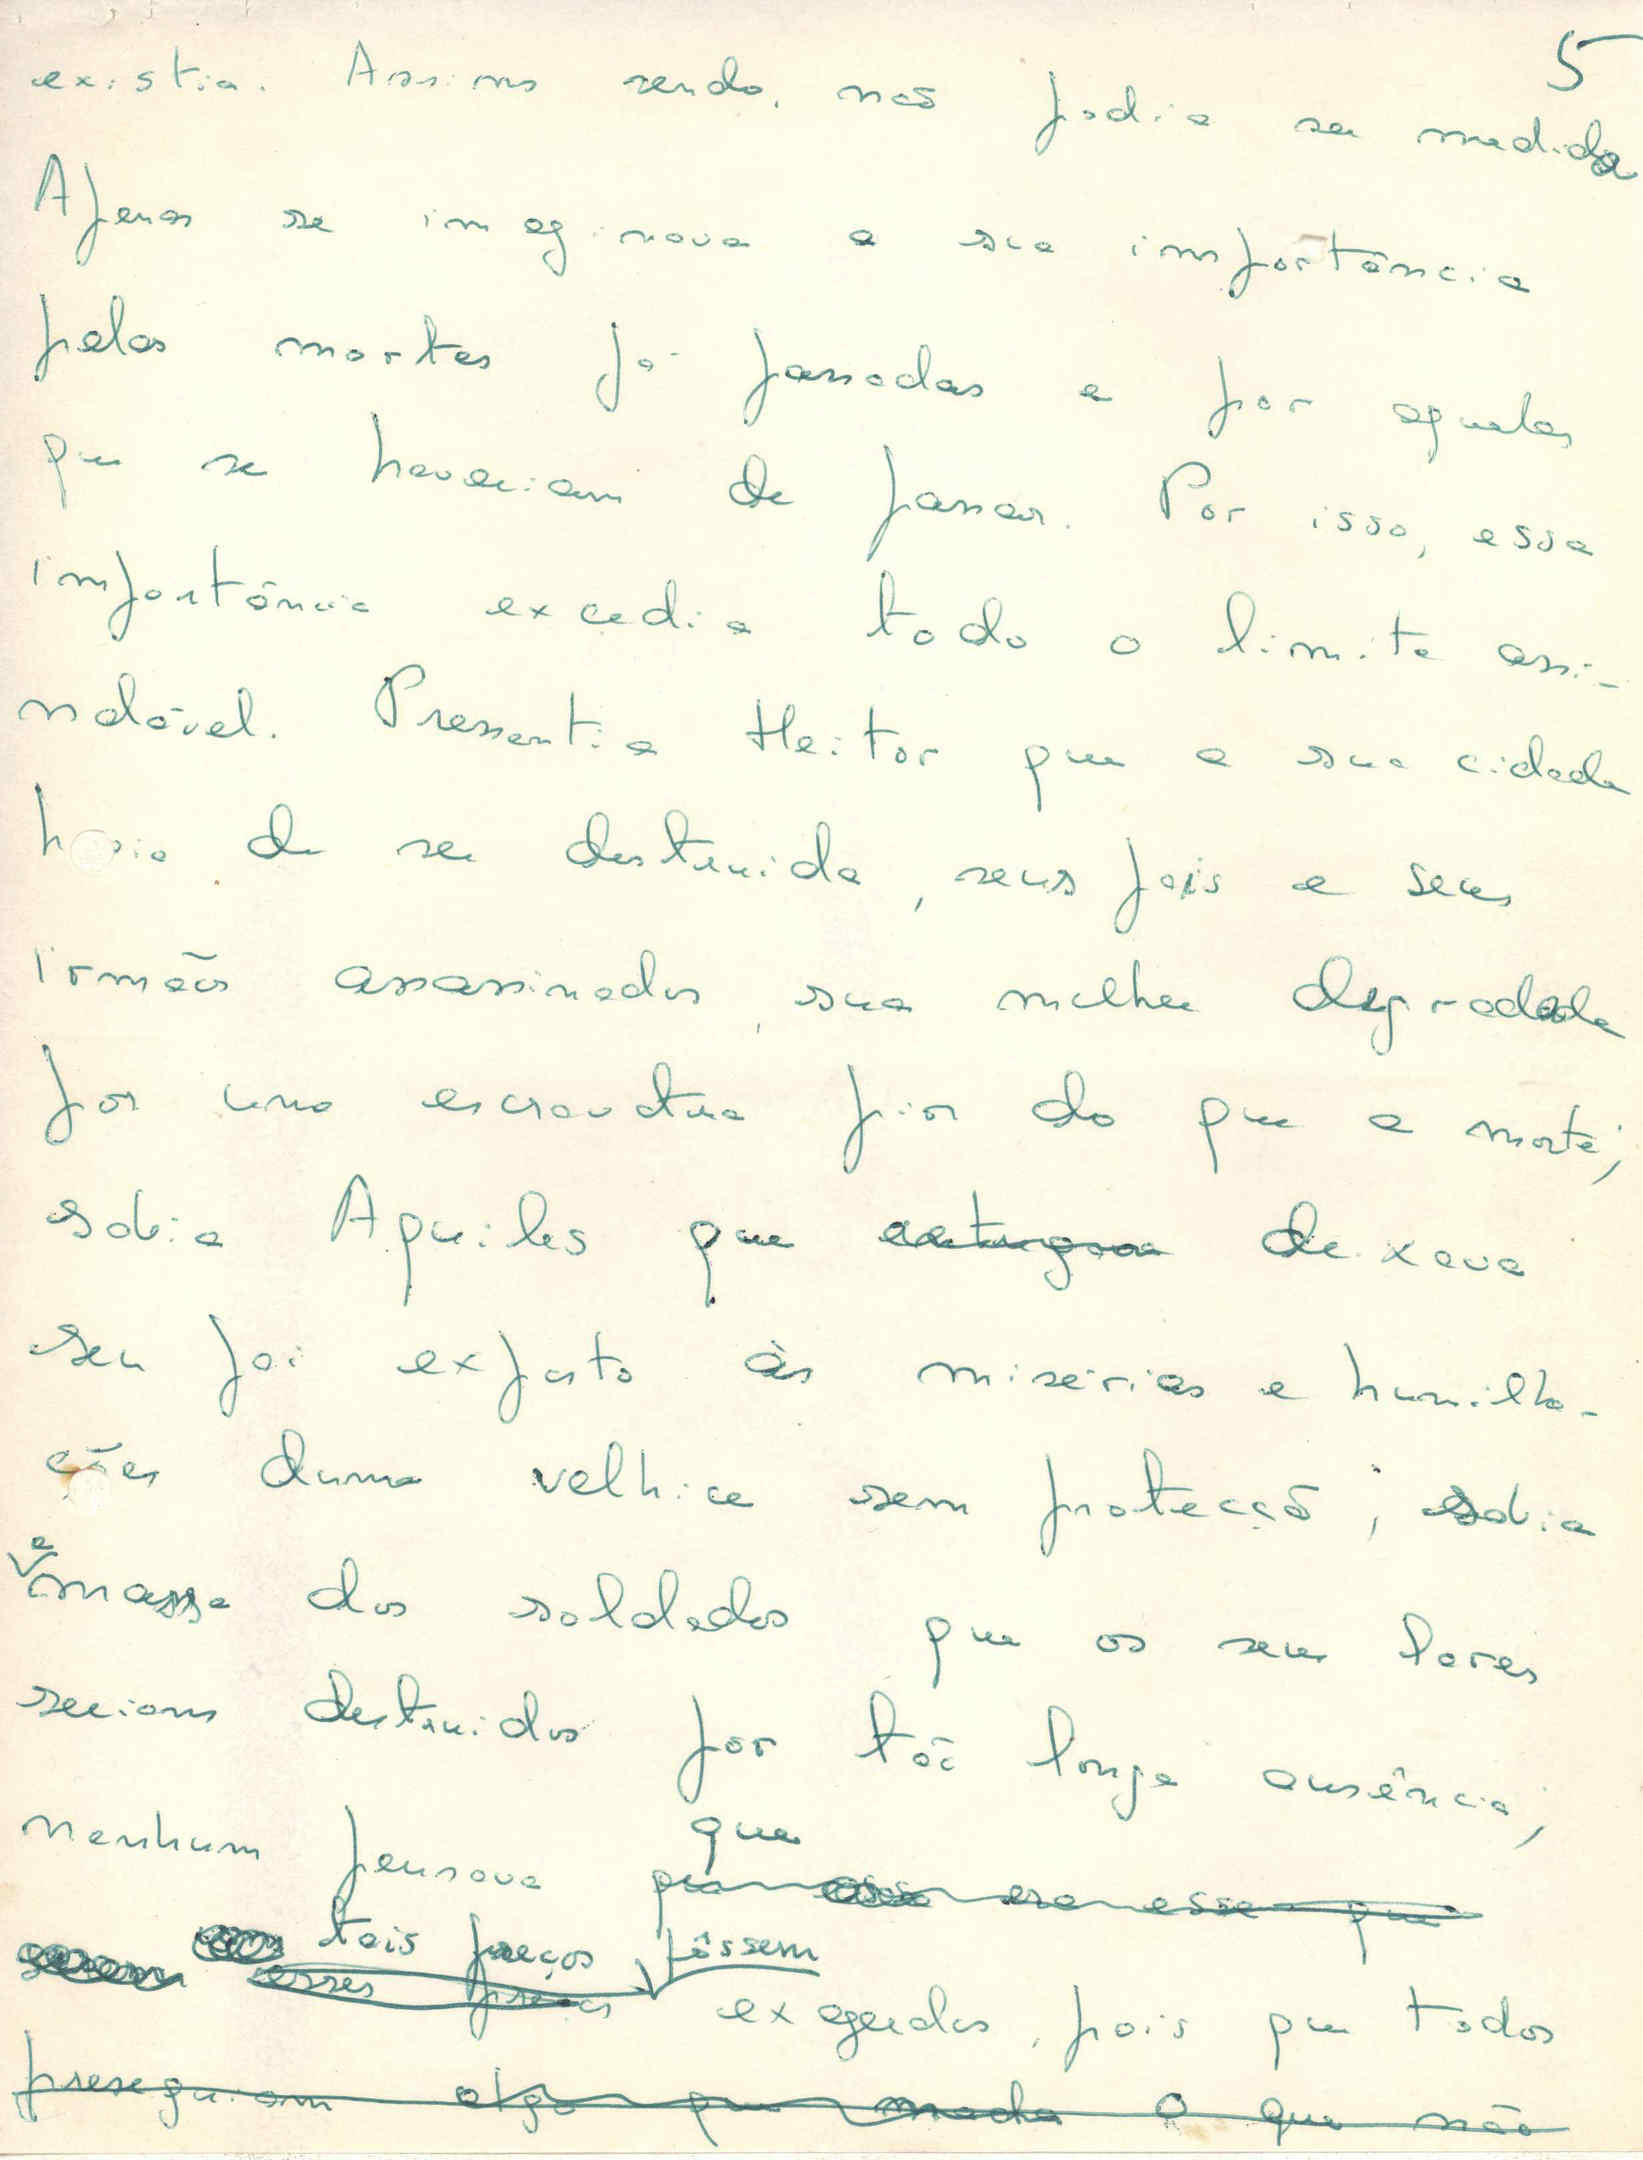 5
existia. Assim sendo, não podia ser medida
Apenas se imaginava a sua importância
pelas mortes já passadas e por aquelas
que se haveriam de passar. Por isso, essa
importância excedia todo o limite assi-
nalável. Pressentia Heitor que a sua cidade
havia de ser destruida, seus pais e seus
irmãos assassinados, sua mulher degradada
por uma escravatura pior do que a morte;
sabia Aquiles que deixava
seu pai exposto às misérias e humilha-
ções duma velhice sem protecção; sabia
a massa dos soldados que os seus lares
seriam destruidos por tão longa ausência;
que
nenhum pensava que essa era esse que
tais preços fôssem
esses preços exagerados, pois que todos
preseguiam algo que nada o que não